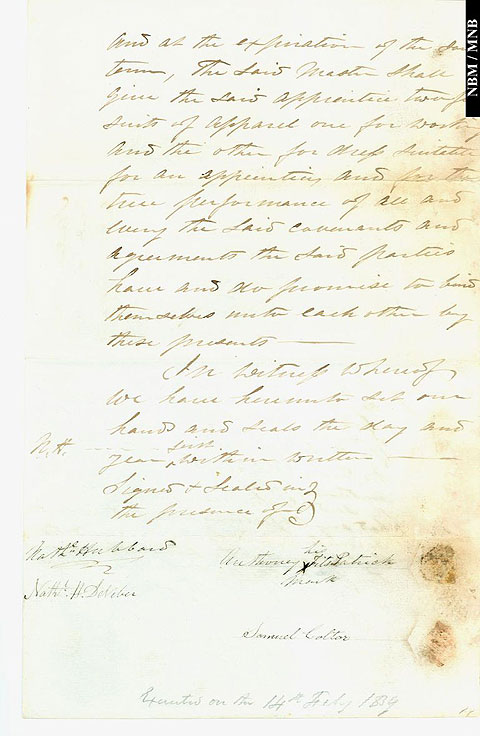 NBM / MNB
and at the expiration of the said
term, The said Master shall
give the said apprentice two
suits of apparel one for working
and the other for dress suitable
for an apprentice, and for the
true performance of all and
every the said covenants and
agreements the said parties
have and do promise to bind
themselves unto each other by
these presents
In witness whereof
we have hereunto set our
hands and seals the day and
N.H. year first within written
Signed & Sealed in
the presence of
Nathl Hubbard
Nathl H. DeVeber
Anthony his Fitzpatrick
X mark
Samuel
Executed on the 14th Feby 1839